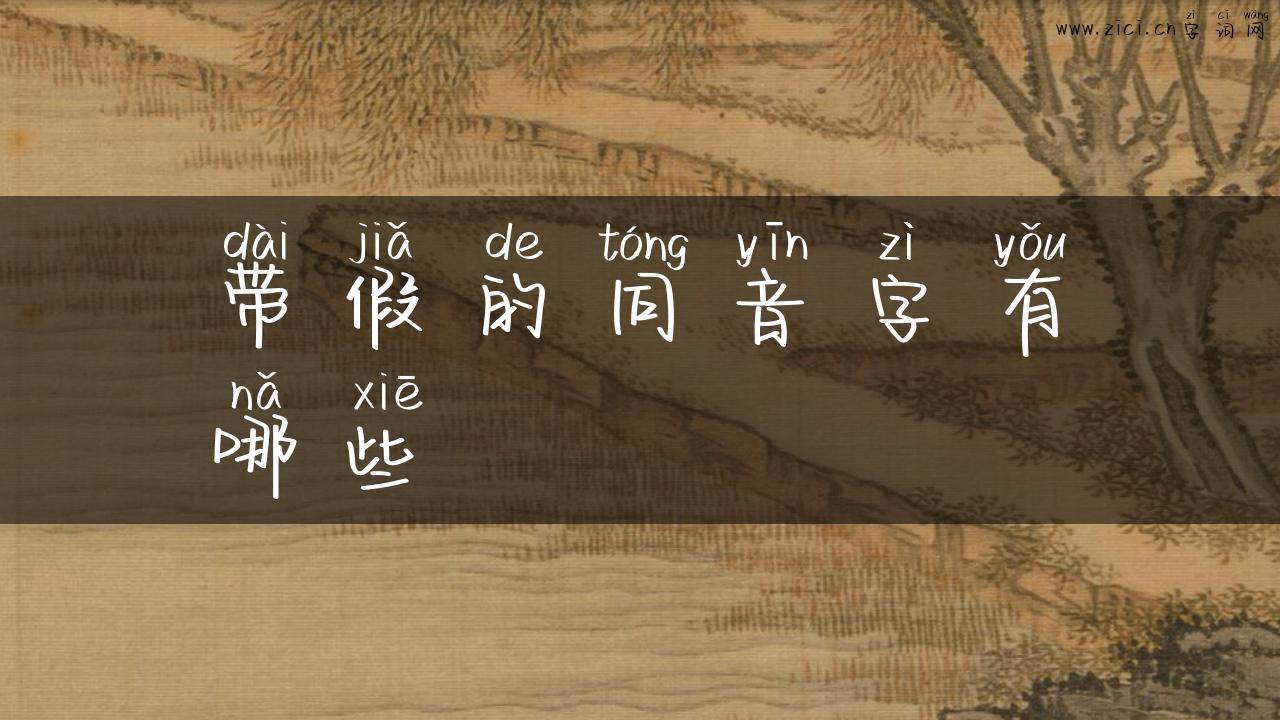 zì cí wǎng
www.zici.cn字词网
dài jiǎ de tóng yīn zì yǒu
带假的同音字有
nǎ xiē
哪些